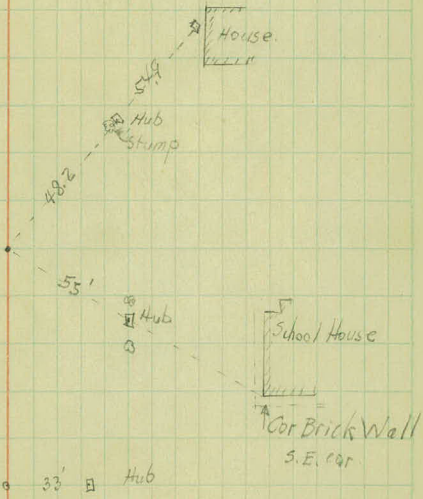 House.
54.9
Hub
Stump
48.2
55'
Hub
School House
Cor Brick Wall
S.E. cor
33'
Hub